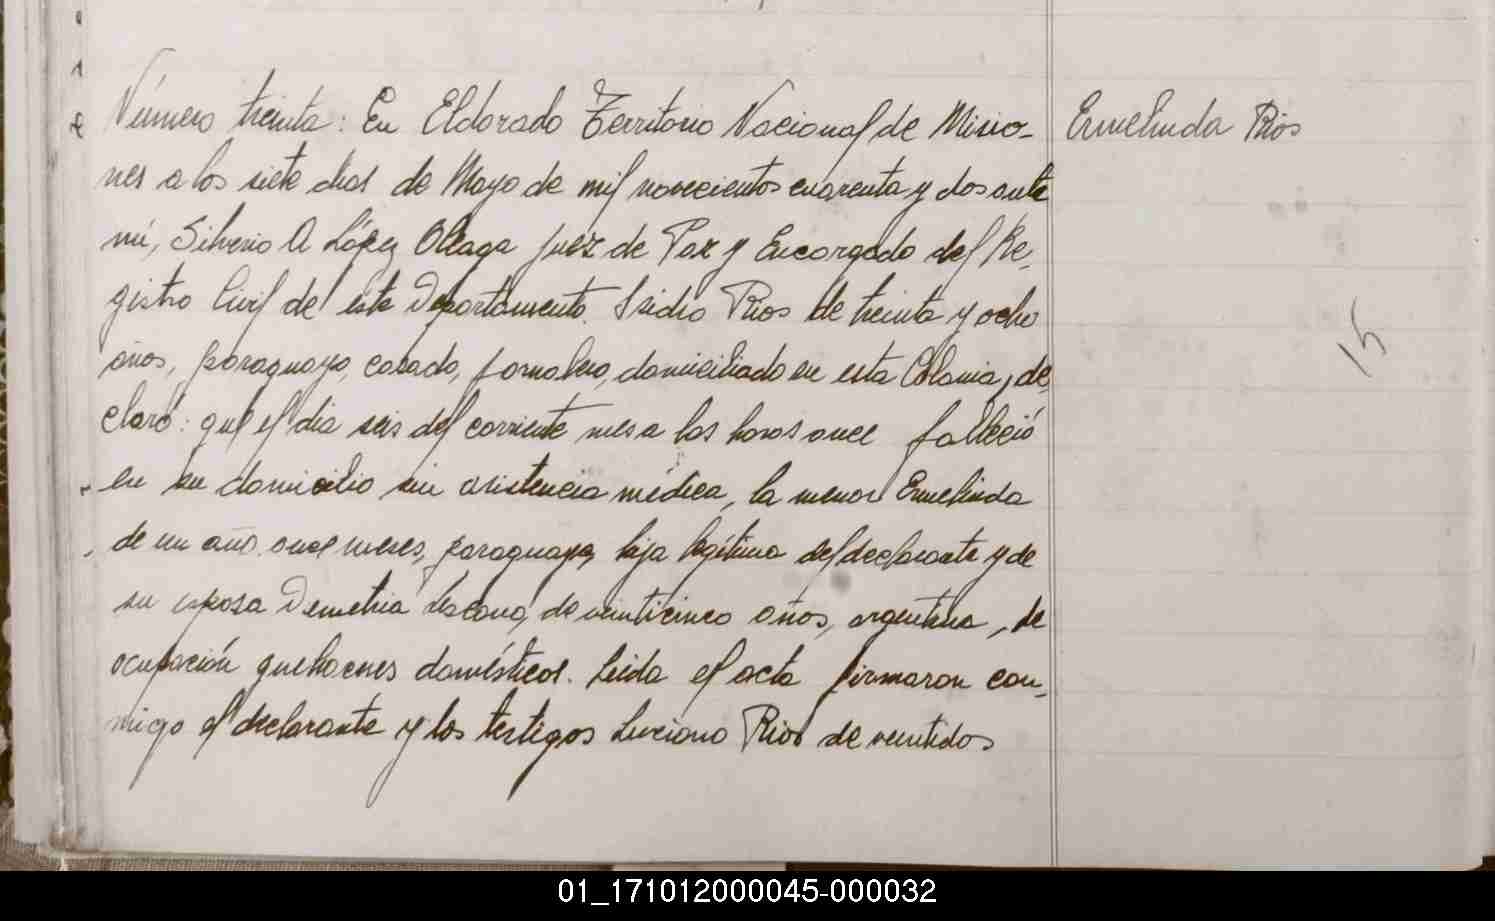 Número treinta: En Eldorado Territorio Nacional de Misio-
nes a los siete dias de Mayo de mil novecientos cuarenta y dos ante
mí, Silverio A López Oleaga Juez de Paz y Encargado del Re-
gistro Civil de este Departamento. Isidro Rios de treinta y ocho
años, paraguayo, casado, jornalero, domiciliado en esta Colonia, de-
claró: que el dia seis del corriente mes a las horas once falleció
en su domicilio sin asistencia médica, la menor Ermelinda
de un año once meses, paraguaya, hija legítima del declarante y de
su esposa Demetria de veinticinco años, argentina, de
ocupación quehaceres domésticos. Leida el acta firmaron con-
migo el declarante y los testigos Luciano Rios de veintidos
Ermelinda Rios
15
01_171012000045-000032